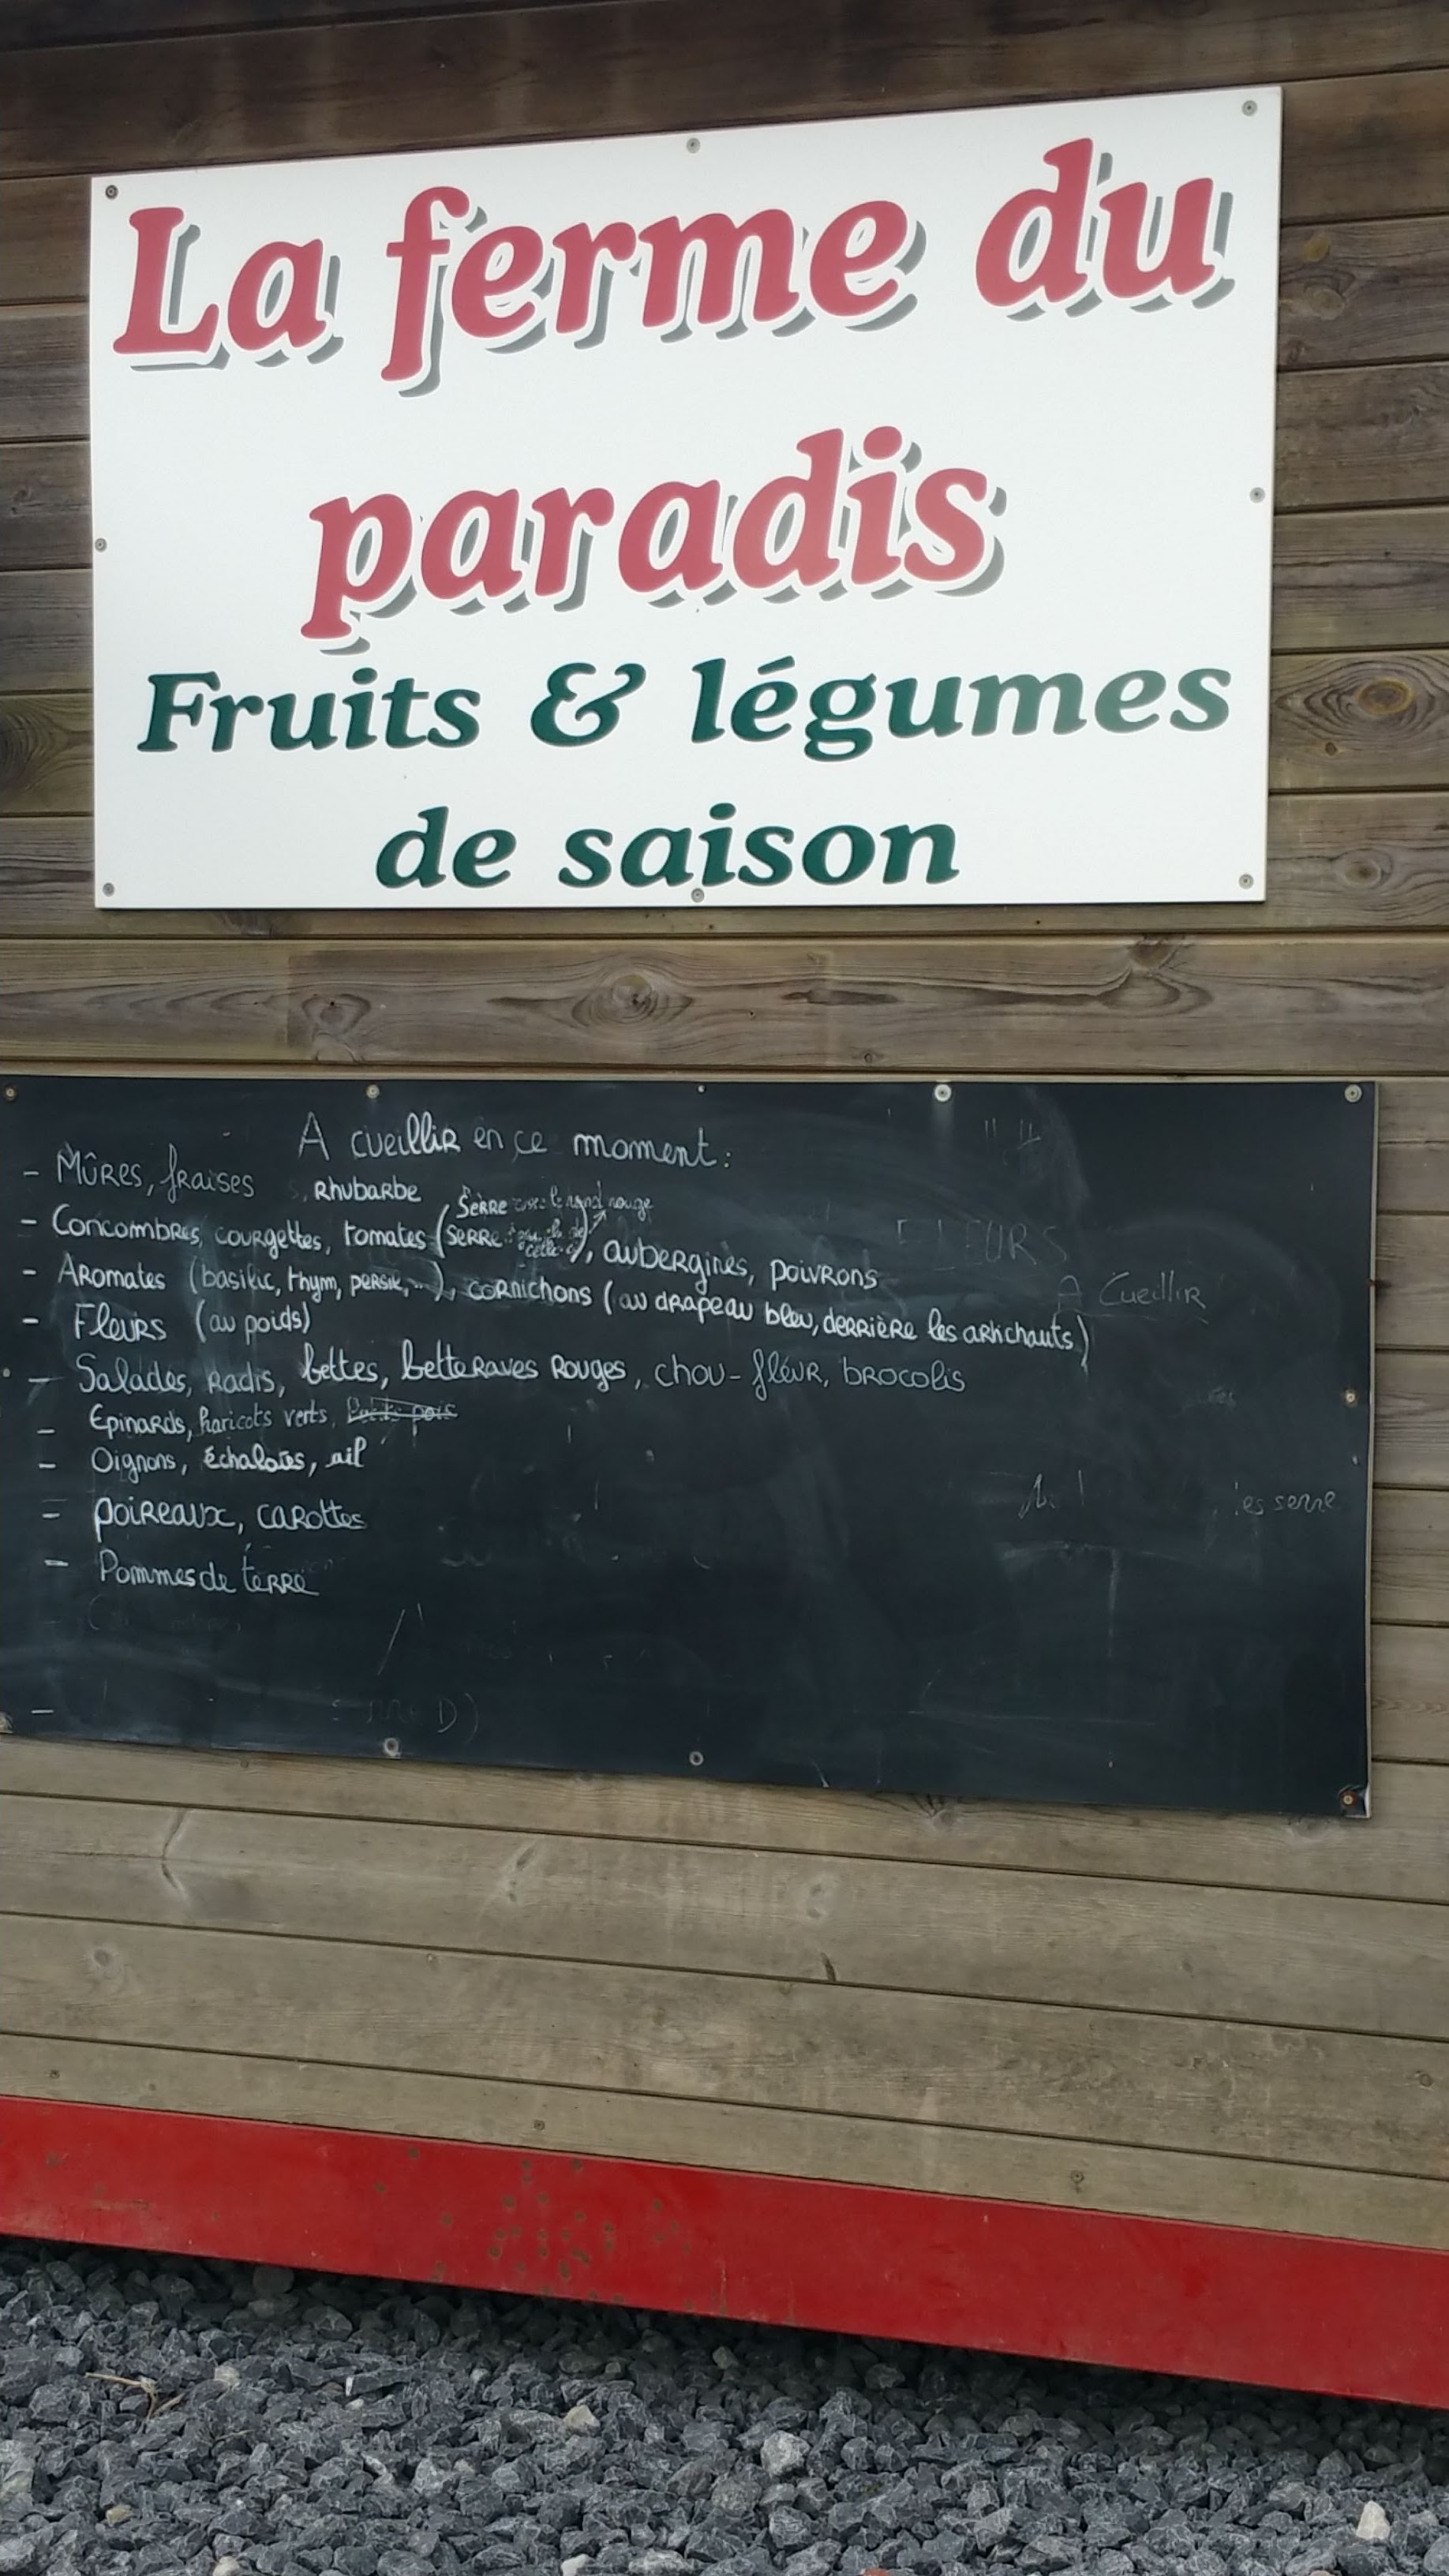 La ferme du
paradis
Fruits & légumes
de saison
A cueillir en ce moment:
- Mûres, fraises, Rhubarbe
Serre avec le rond rouge
- Concombres, courgettes, tomates (serre), aubergines, poivrons
- Aromates (basilic, thym, persil, ...), cornichons (au drapeau bleu, derrière les artichauts)
- Fleurs (au poids)
- Salades, radis, bettes, betteraves Rouges, chou-fleur, brocolis
- Epinards, haricots verts, Petits pois
- Oignons, échalotes, ail
- poireaux, carottes
- Pommes de terre
FLEURS
A Cueillir